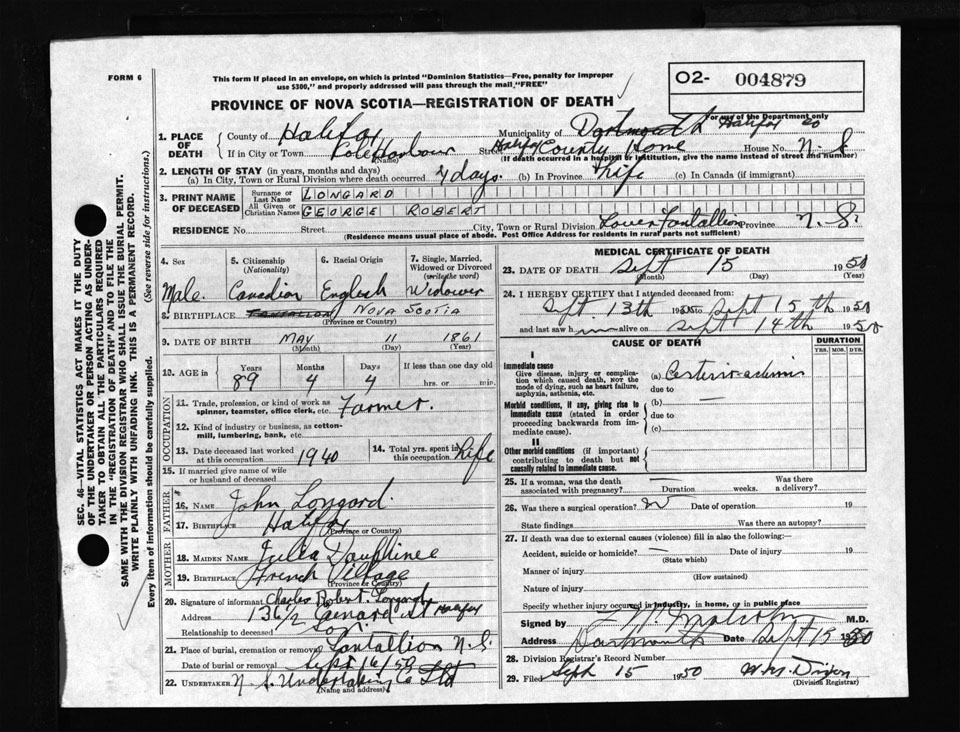 FORM 6
This form if placed in an envelope, on which is printed "Dominion Statistics—Free, penalty for improper
use $300," and properly addressed will pass through the mail, "FREE"
O2- 004879
For use of the Department only
PROVINCE OF NOVA SCOTIA—REGISTRATION OF DEATH
1. PLACE OF DEATH
County of Halifax
Municipality of Dartmouth Halifax Co
If in City or Town Cole Harbour (Name) Street Halifax County Home House No. N. S
(If death occurred in a hospital or institution, give the name instead of street and number)
2. LENGTH OF STAY (in years, months and days)
(a) In City, Town or Rural Division where death occurred 4 days. (b) In Province Life (c) In Canada (if immigrant)
3. PRINT NAME OF DECEASED
Surname or Last Name LONGARD
All Given or Christian Names GEORGE ROBERT
RESIDENCE No. Street City, Town or Rural Division Lower Tantallion Province N. S.
(Residence means usual place of abode. Post Office Address for residents in rural parts not sufficient)
4. Sex Male.
5. Citizenship (Nationality) Canadian
6. Racial Origin English
7. Single, Married, Widowed or Divorced (write the word) Widower
8. BIRTHPLACE TANTALLON NOVA SCOTIA
(Province or Country)
9. DATE OF BIRTH MAY 11 1861
(Month) (Day) (Year)
10. AGE in Years Months Days If less than one day old
89 4 4 hrs. or min.
OCCUPATION
11. Trade, profession, or kind of work as spinner, teamster, office clerk, etc. Farmer.
12. Kind of industry or business, as cotton-mill, lumbering, bank, etc.
13. Date deceased last worked at this occupation 1940
14. Total yrs. spent in this occupation Life
15. If married give name of wife or husband of deceased
FATHER
16. NAME John Longard.
17. BIRTHPLACE Halifax
(Province or Country)
MOTHER
18. MAIDEN NAME Julia Dauphinee
19. BIRTHPLACE French Village
(Province or Country)
20. Signature of informant Charles Robert Longard
Address 136½ St Halifax
Relationship to deceased Son.
21. Place of burial, cremation or removal Tantallion N.S.
Date of burial or removal Sept 16/50
22. UNDERTAKER N. S. Undertaking Co Ltd
(Name and address)
MEDICAL CERTIFICATE OF DEATH
23. DATE OF DEATH Sept 15 1950
(Month) (Day) (Year)
24. I HEREBY CERTIFY that I attended deceased from:
Sept. 13th 1950 to Sept 15th 1950
and last saw him alive on Sept 14th 1950
CAUSE OF DEATH
DURATION
YRS. MOS. DYS.
I
Immediate cause
Give disease, injury or complication which caused death, NOT the mode of dying, such as heart failure, asphyxia, asthenia, etc.
(a)
due to
Morbid conditions, if any, giving rise to immediate cause (stated in order proceeding backwards from immediate cause).
(b) —
due to
(c)
II
Other morbid conditions (if important) contributing to death but not causally related to immediate cause.
25. If a woman, was the death associated with pregnancy? — Duration weeks. Was there a delivery?
26. Was there a surgical operation? Date of operation 19
State findings Was there an autopsy?
27. If death was due to external causes (violence) fill in also the following:
Accident, suicide or homicide? — Date of injury 19
(State which)
Manner of injury
(How sustained)
Nature of injury
Specify whether injury occurred in industry, in home, or in public place
Signed by Malcolm M.D.
Address Dartmouth Date Sept 15 1950
28. Division Registrar's Record Number
29. Filed Sept 15 1950 W.M. Dixon
(Division Registrar)
SEC. 46—VITAL STATISTICS ACT MAKES IT THE DUTY
OF THE UNDERTAKER OR PERSON ACTING AS UNDERTAKER
TO OBTAIN ALL THE PARTICULARS REQUIRED
IN THE "REGISTRATION OF DEATH" AND TO FILE THE
SAME WITH THE DIVISION REGISTRAR WHO SHALL ISSUE THE BURIAL PERMIT.
WRITE PLAINLY WITH UNFADING INK. THIS IS A PERMANENT RECORD.
Every item of information should be carefully supplied. (See reverse side for instructions.)